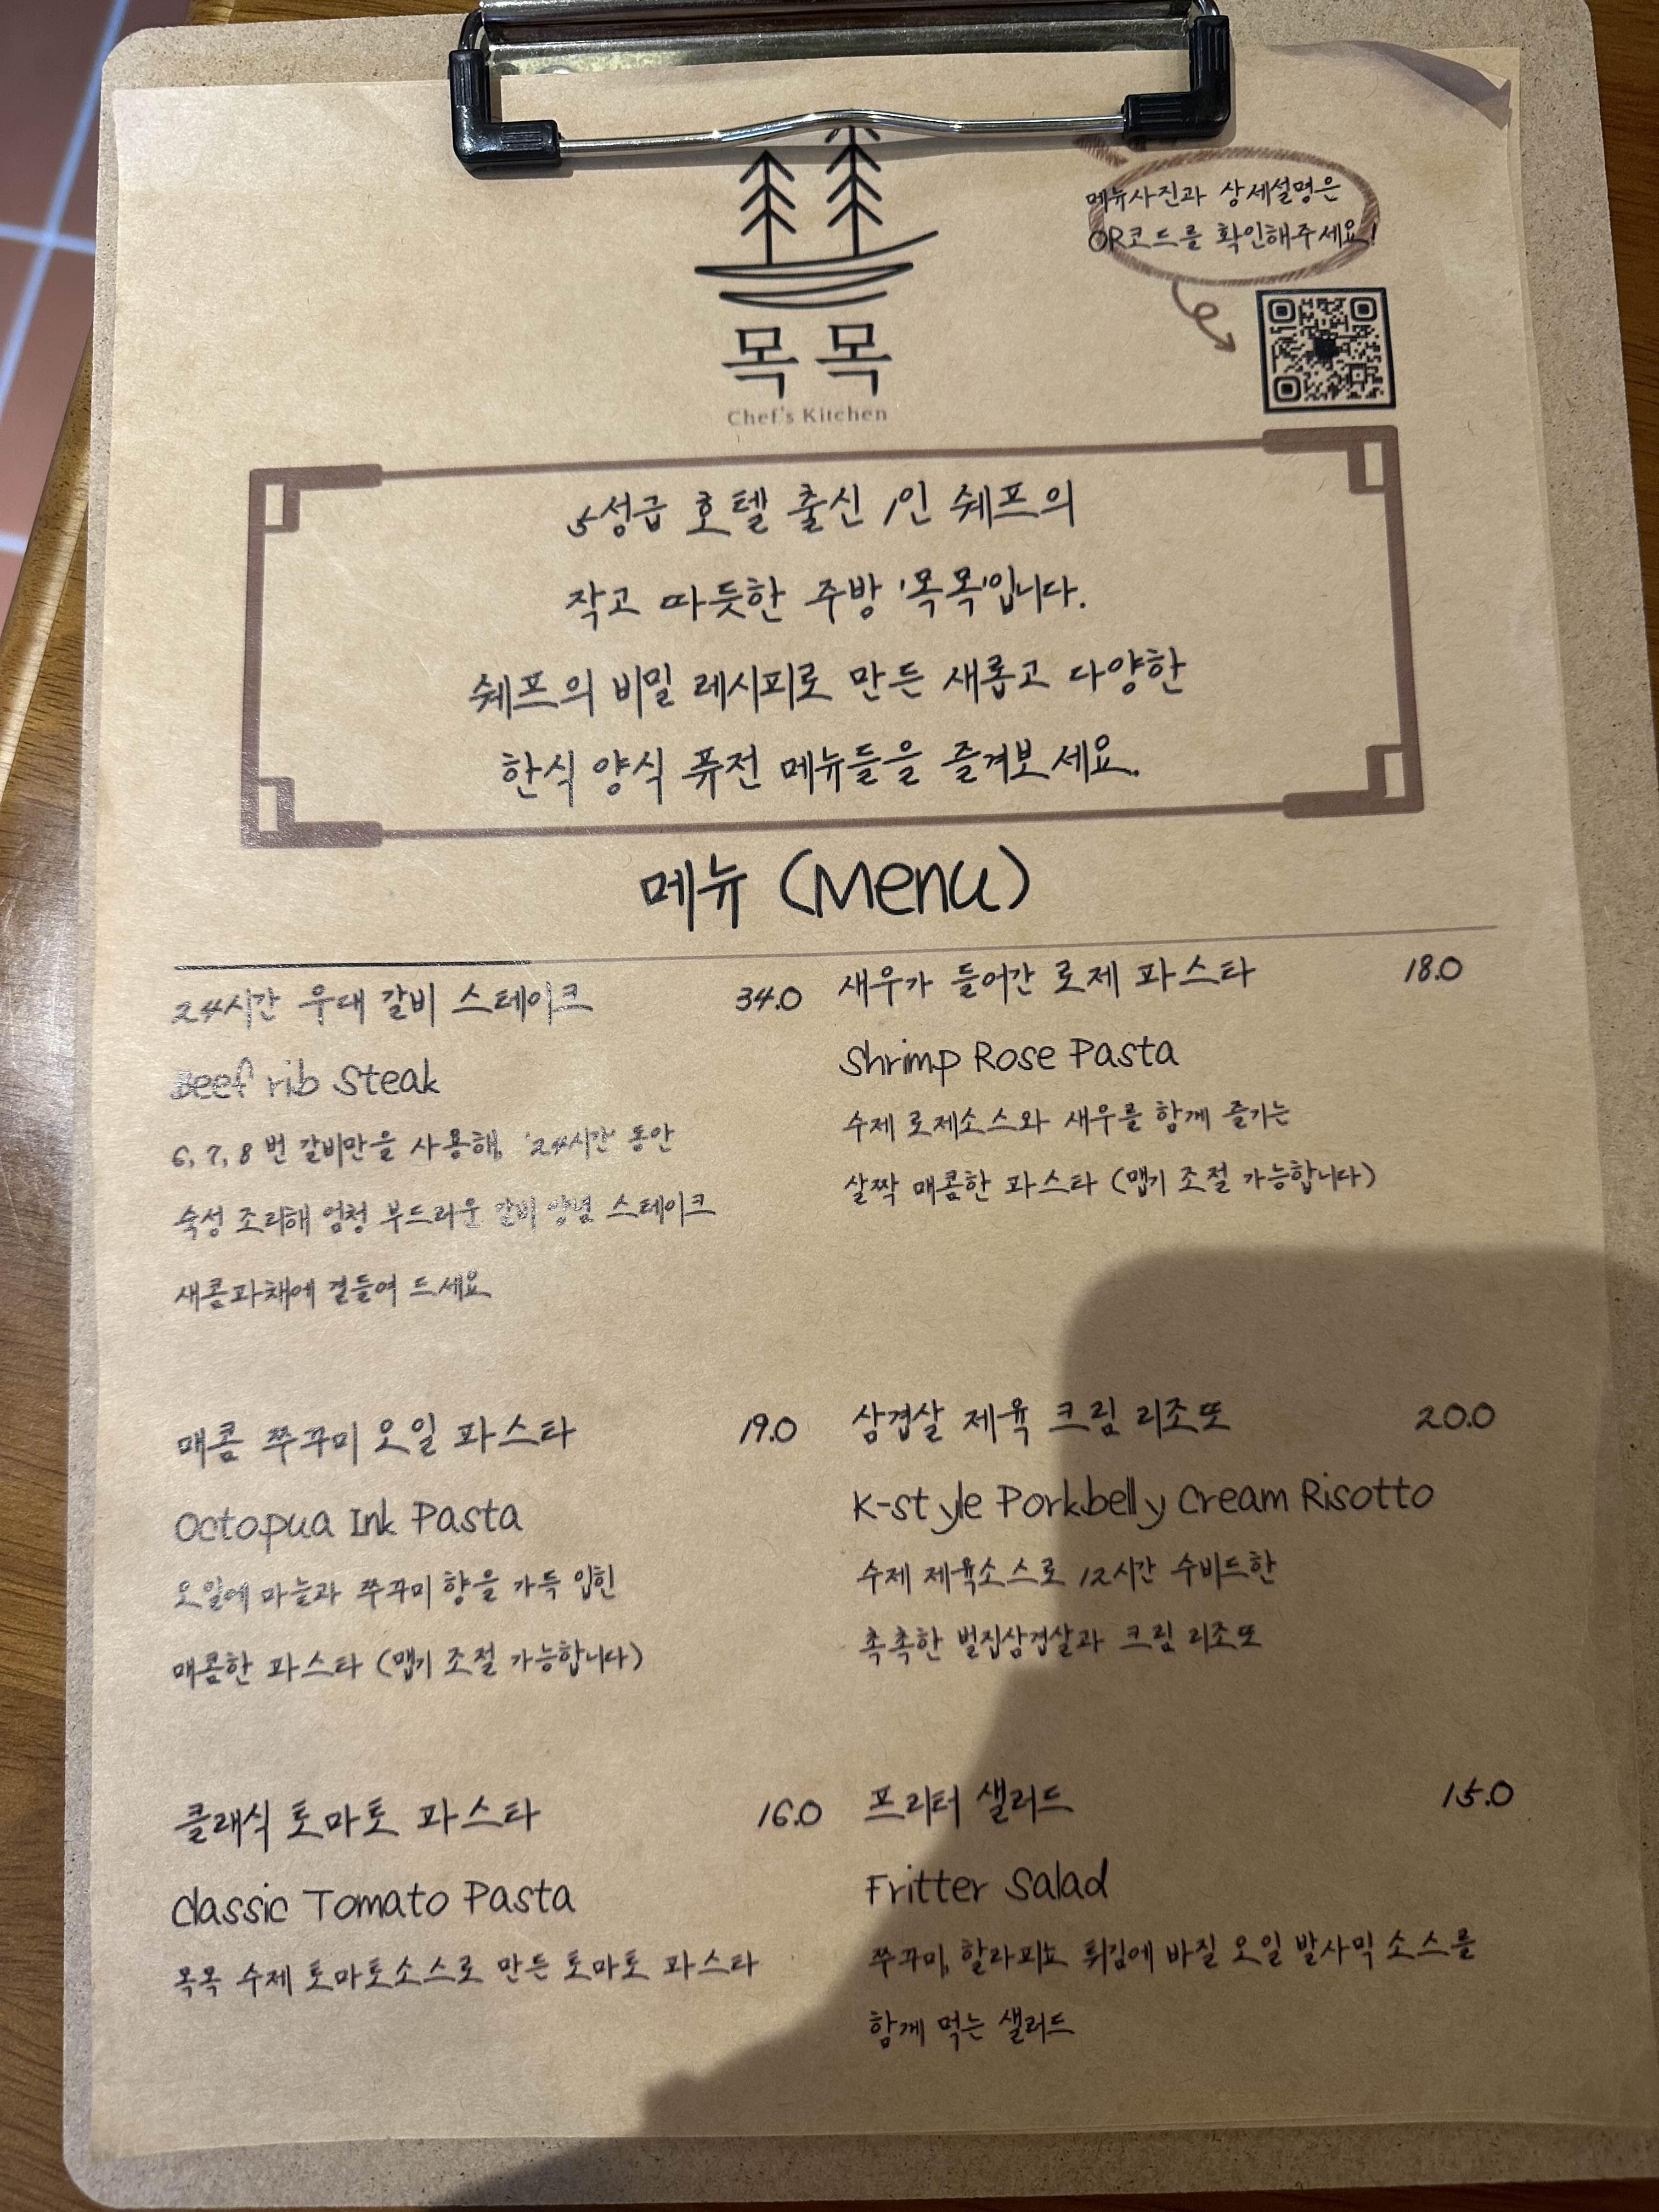 메뉴사진과 상세설명은
QR코드를 확인해주세요!
목목
Chef's Kitchen
5성급 호텔 출신 1인 쉐프의
작고 따듯한 주방 '목목'입니다.
쉐프의 비밀 레시피로 만든 새롭고 다양한
한식 양식 퓨전 메뉴들을 즐겨보세요.
메뉴 (Menu)
24시간 우대 갈비 스테이크 34.0
Beef rib Steak
6, 7, 8 번 갈비만을 사용해, '24시간' 동안
숙성 조리해 엄청 부드러운 갈비 양념 스테이크
새콤과채에 곁들여 드세요
새우가 들어간 로제 파스타 18.0
Shrimp Rose Pasta
수제 로제소스와 새우를 함께 즐기는
살짝 매콤한 파스타 (맵기 조절 가능합니다)
매콤 쭈꾸미 오일 파스타 19.0
Octopua Ink Pasta
오일에 마늘과 쭈꾸미 향을 가득 입힌
매콤한 파스타 (맵기 조절 가능합니다)
삼겹살 제육 크림 리조또 20.0
K-style Porkbelly Cream Risotto
수제 제육소스로 12시간 수비드한
촉촉한 벌집삼겹살과 크림 리조또
클래식 토마토 파스타 16.0
Classic Tomato Pasta
목목 수제 토마토소스로 만든 토마토 파스타
프리터 샐러드 15.0
Fritter Salad
쭈꾸미, 할라피뇨 튀김에 바질 오일 발사믹 소스를
함께 먹는 샐러드